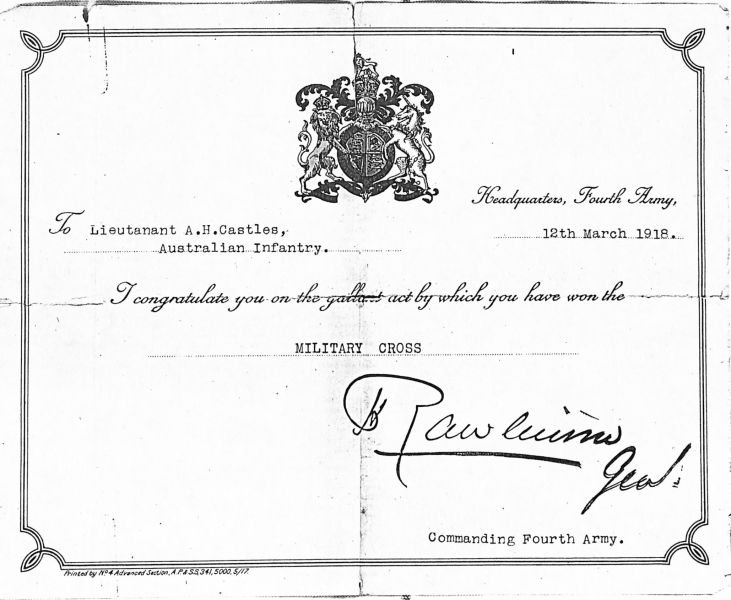 Headquarters, Fourth Army,
To Lieutanant A.H.Castles,
12th March 1918.
Australian Infantry.
I congratulate you on the gallant act by which you have won the
MILITARY CROSS
H Rawlinson
Genl.
Commanding Fourth Army.
Printed by Nº 4 Advanced Section, A.P.&S.S, 341, 5000, 5/17.